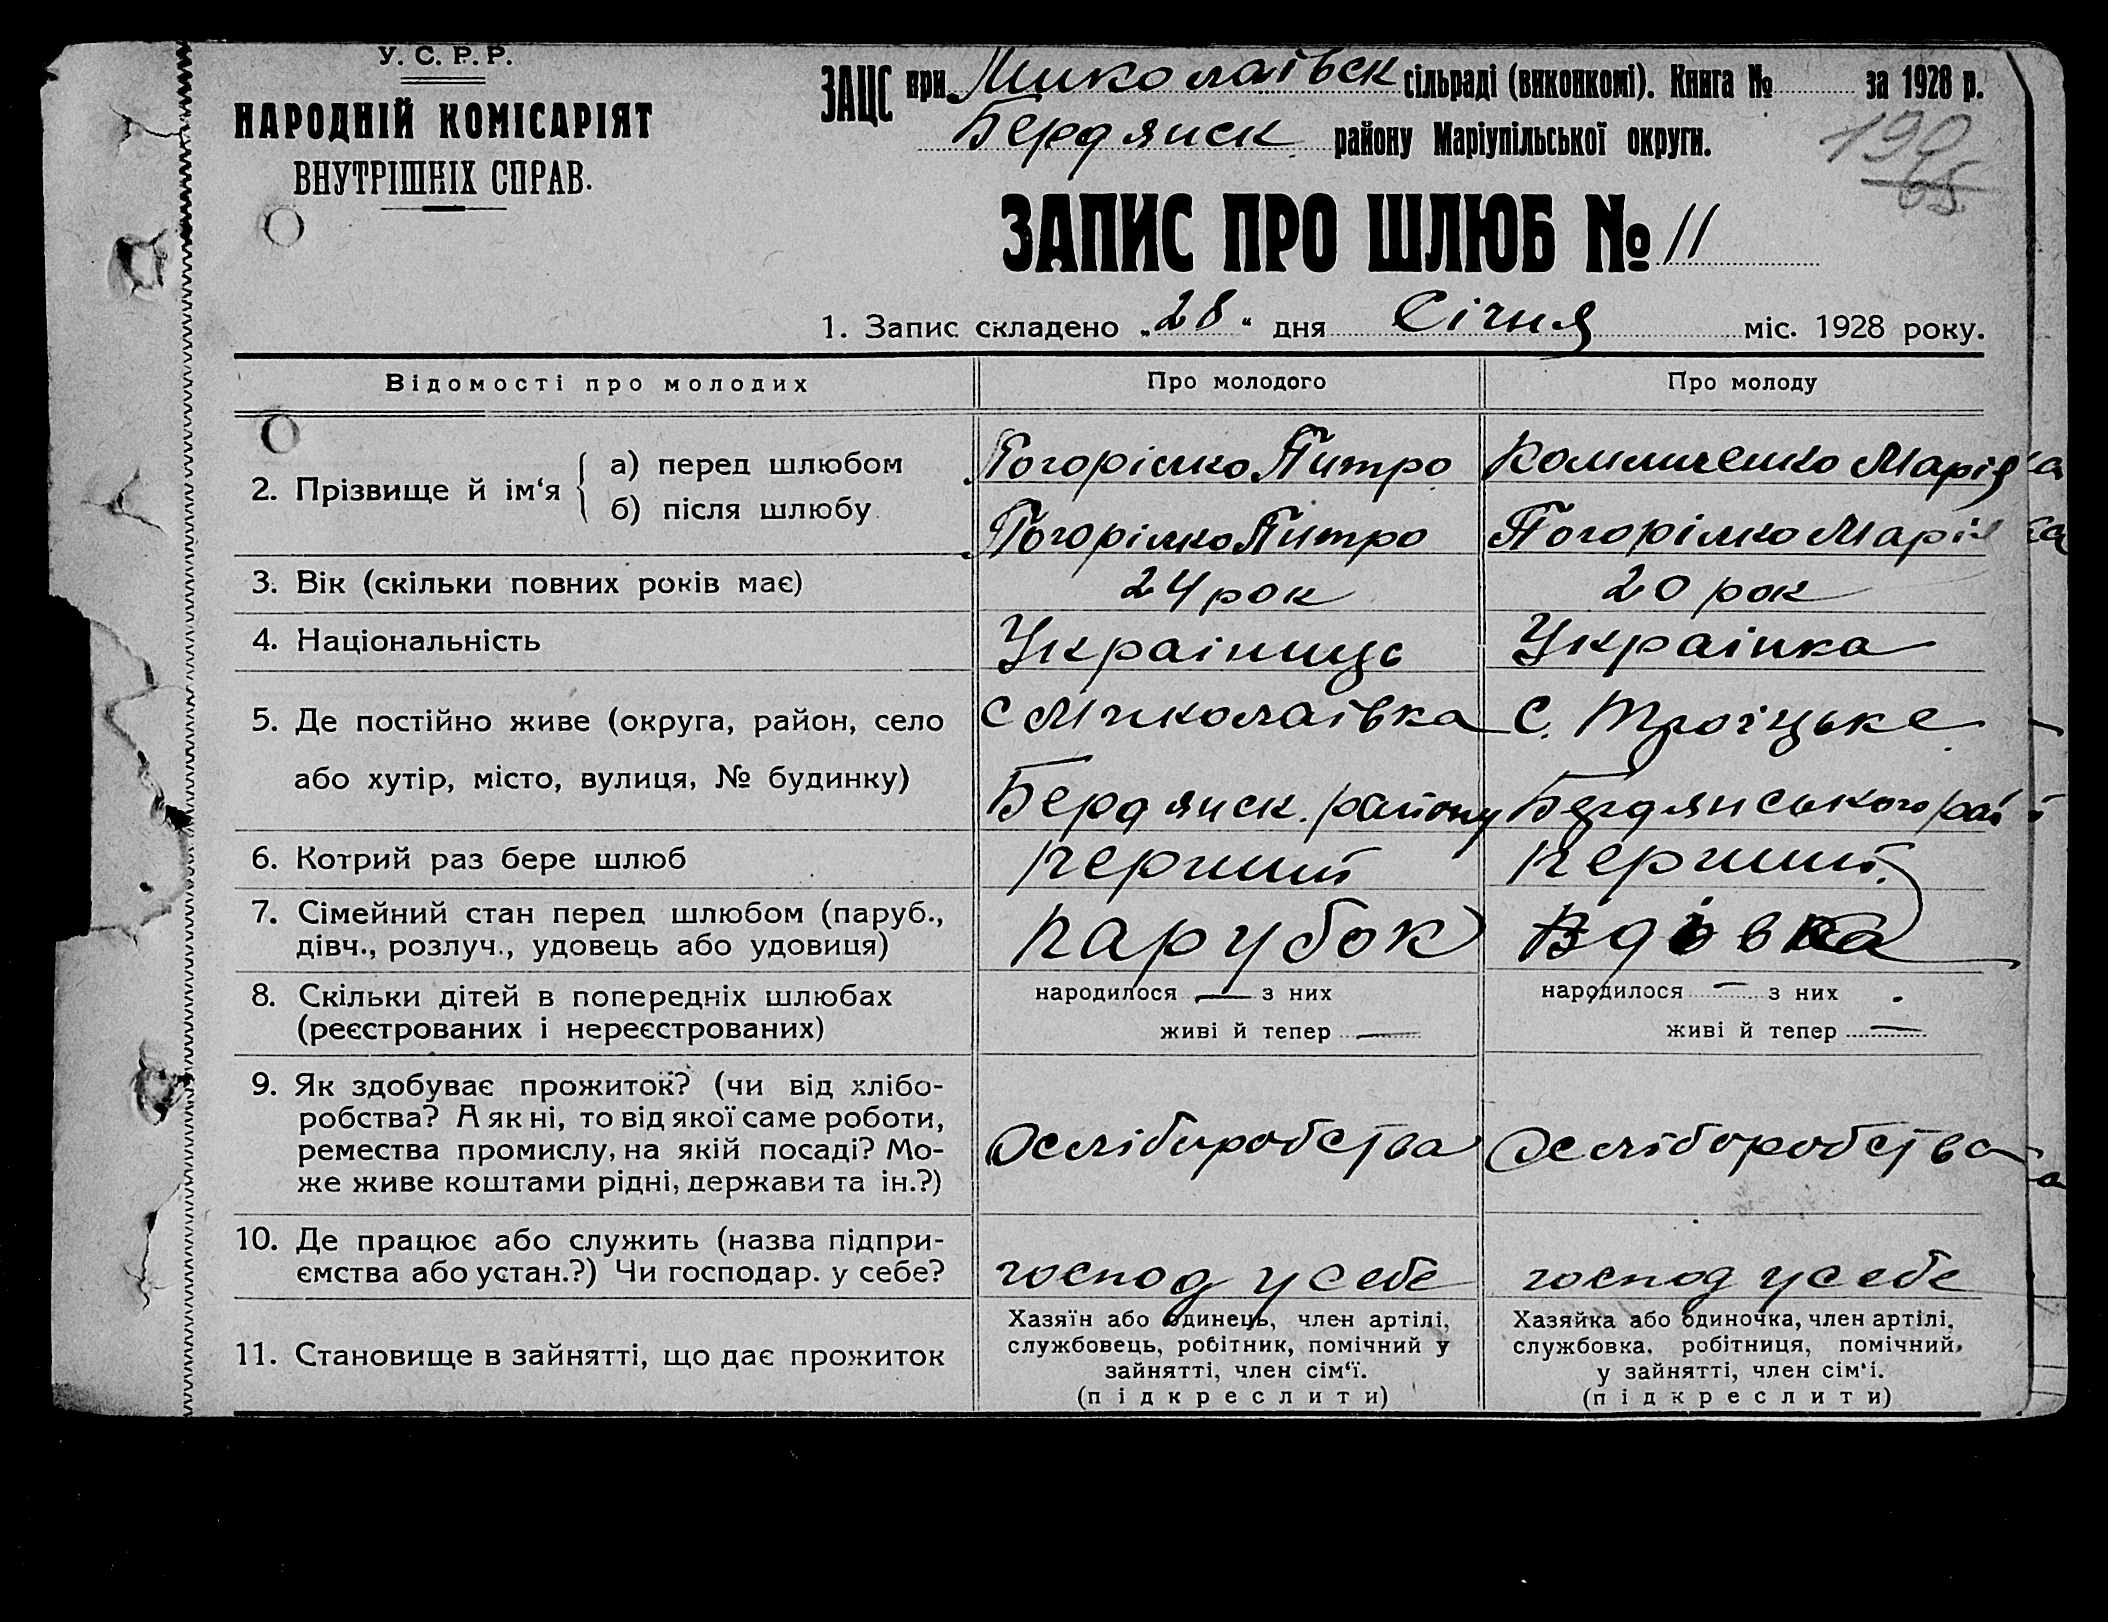 У. С. Р. Р.
НАРОДНІЙ КОМІСАРІЯТ
ВНУТРІШНІХ СПРАВ.
ЗАЦС при Миколаівск сільраді (виконкомі). Книга № за 1928 р.
Бердянск району Маріупільської округи.
190
65
ЗАПИС ПРО ШЛЮБ № 11
1. Запис складено „28“ дня Січня міс. 1928 року.
Відомості про молодих Про молодого Про молоду
2. Прізвище й ім‘я { а) перед шлюбом Погорілко Питро Марія
б) після шлюбу Погорілко Питро Погорілко Марія
3. Вік (скільки повних років має) 24 рок 20 рок
4. Національність Украіниць Украінка
5. Де постійно живе (округа, район, село с Миколаівка С. Троіцьке
або хутір, місто, вулиця, № будинку) Бердянск. району Бердянського рай
6. Котрий раз бере шлюб перший перший.
7. Сімейний стан перед шлюбом (паруб., парубок Вдівка
дівч., розлуч., удовець або удовиця)
8. Скільки дітей в попередніх шлюбах народилося — з них народилося — з них
(реєстрованих і нереєстрованих) живі й тепер — живі й тепер —
9. Як здобуває прожиток? (чи від хлібо-
робства? А як ні, то від якої саме роботи,
ремества промислу, на якій посаді? Мо- Хліборобства Хліборобства
же живе коштами рідні, держави та ін.?)
10. Де працює або служить (назва підпри-
ємства або устан.?) Чи господар. у себе? господ у себе господ у себе
11. Становище в зайнятті, що дає прожиток
Хазяїн або одинець, член артілі,
службовець, робітник, помічний у
зайнятті, член сім‘ї.
(підкреслити)
Хазяйка або одиночка, член артілі,
службовка, робітниця, помічний
у зайнятті, член сім‘і.
(підкреслити)